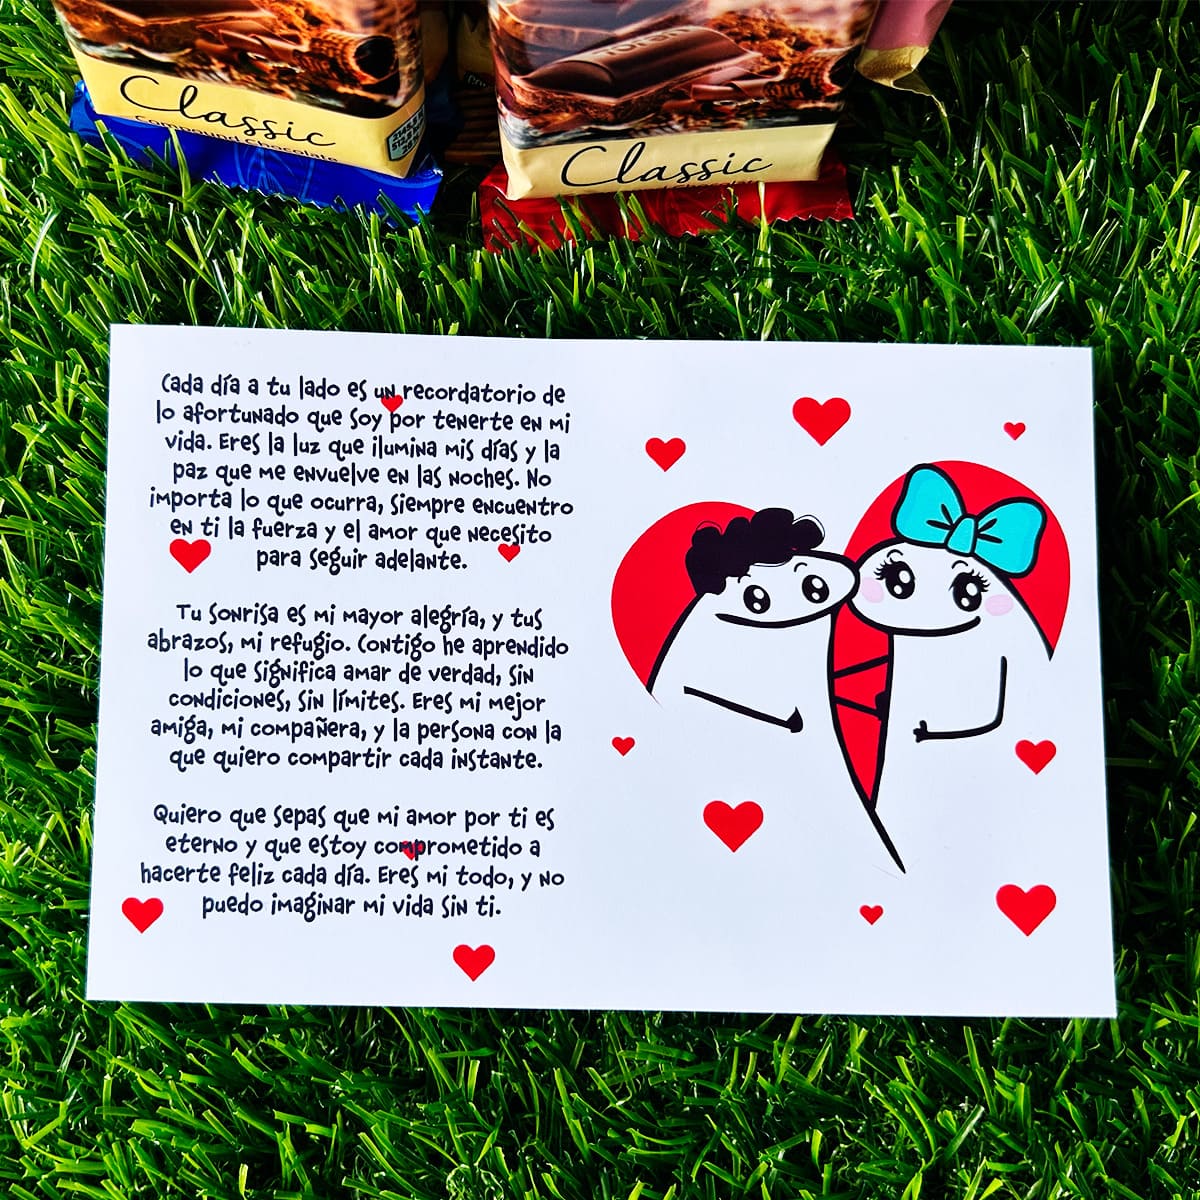 Classic
Compound Chocolate
Classic
Cada día a tu lado es un recordatorio de
lo afortunado que soy por tenerte en mi
vida. Eres la luz que ilumina mis días y la
paz que me envuelve en las noches. No
importa lo que ocurra, siempre encuentro
en ti la fuerza y el amor que necesito
para seguir adelante.
Tu sonrisa es mi mayor alegría, y tus
abrazos, mi refugio. Contigo he aprendido
lo que significa amar de verdad, sin
condiciones, sin límites. Eres mi mejor
amiga, mi compañera, y la persona con la
que quiero compartir cada instante.
Quiero que sepas que mi amor por ti es
eterno y que estoy comprometido a
hacerte feliz cada día. Eres mi todo, y no
puedo imaginar mi vida sin ti.